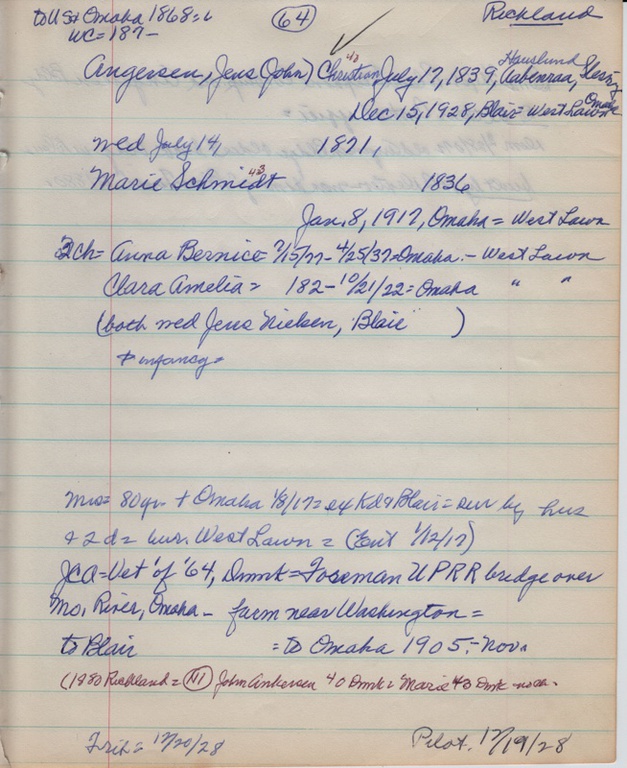 to US & Omaha 1868=6 (64) Richland
WC=187-
Hauslund
Angersen, Jens (John) Christian 40 July 17, 1839, Aabenraa,
Omaha
Dec 15, 1928, Blair= West Lawn
wed July 14, 1871,
Marie Schmidt 43 1836
Jan. 8, 1917, Omaha = West Lawn
2ch= Anna Bernice= 7/15/77- 4/25/37=Omaha. - West Lawn
Clara Amelia= 182- 10/21/22=Omaha " "
(both wed Jens Nielsen, Blair )
+ infancy=
Mrs= 80yr. + Omaha 1/8/17= ex Kd & Blair= sur by hus
+ 2 d= bur. West Lawn = (Ent 1/12/17)
JCA=Vet of '64, Dnmk=Foseman UPRR bridge over
Mo. River, Omaha - farm near Washington =
to Blair = to Omaha 1905.- Nov.
(1880 Richland= John Ankersen 40 Dmk= Marie 43 Dmk -noch.
Trib= 12/20/28 Pilot. 12/19/28